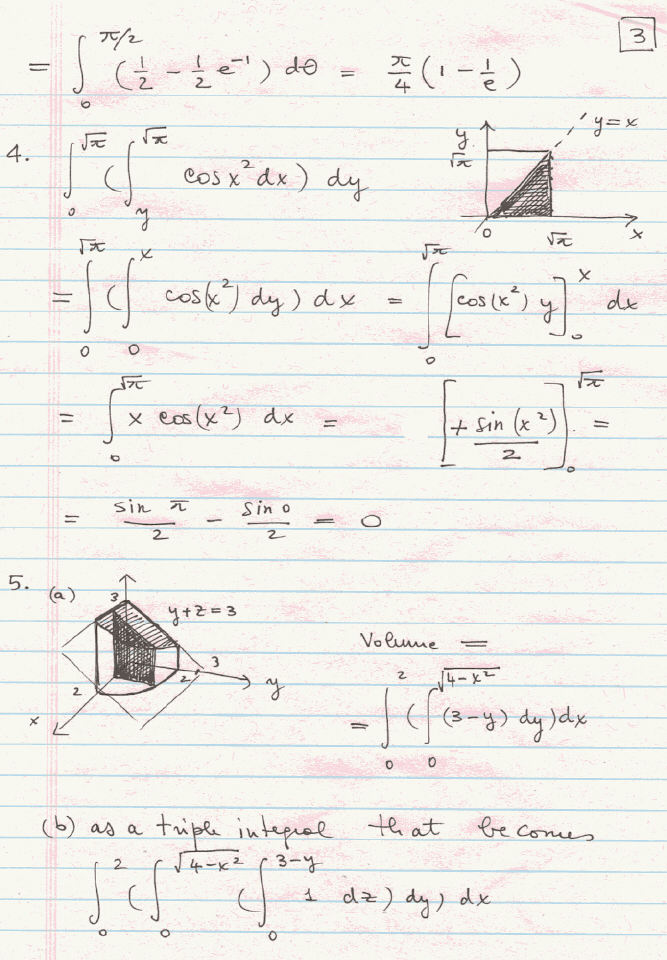 3
= ∫₀^{π/2} (1/2 − 1/2 e⁻¹) dθ = π/4 (1 − 1/e)
4. ∫₀^{√π} (∫_y^{√π} cos x² dx) dy
y
√π
y=x
0
√π
x
= ∫₀^{√π} (∫₀^x cos(x²) dy) dx = ∫₀^{√π} [cos(x²) y]₀^x dx
= ∫₀^{√π} x cos(x²) dx = [+ sin(x²)/2]₀^{√π} =
= sin π/2 − sin 0/2 = 0
5. (a)
3
y+z=3
2
2
3
y
x
Volume =
= ∫₀² (∫₀^{√4−x²} (3−y) dy)dx
(b) as a triple integral that becomes
∫₀² (∫₀^{√4−x²} (∫₀^{3−y} 1 dz) dy) dx